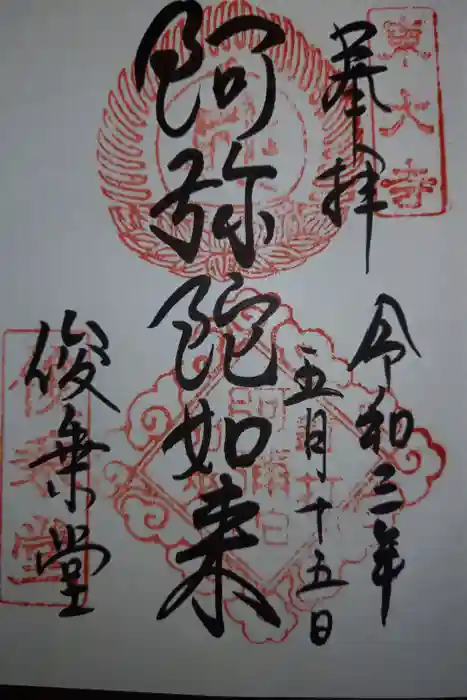 東大寺
奉拝
令和三年
五月十五日
阿弥陀如来
俊乗堂